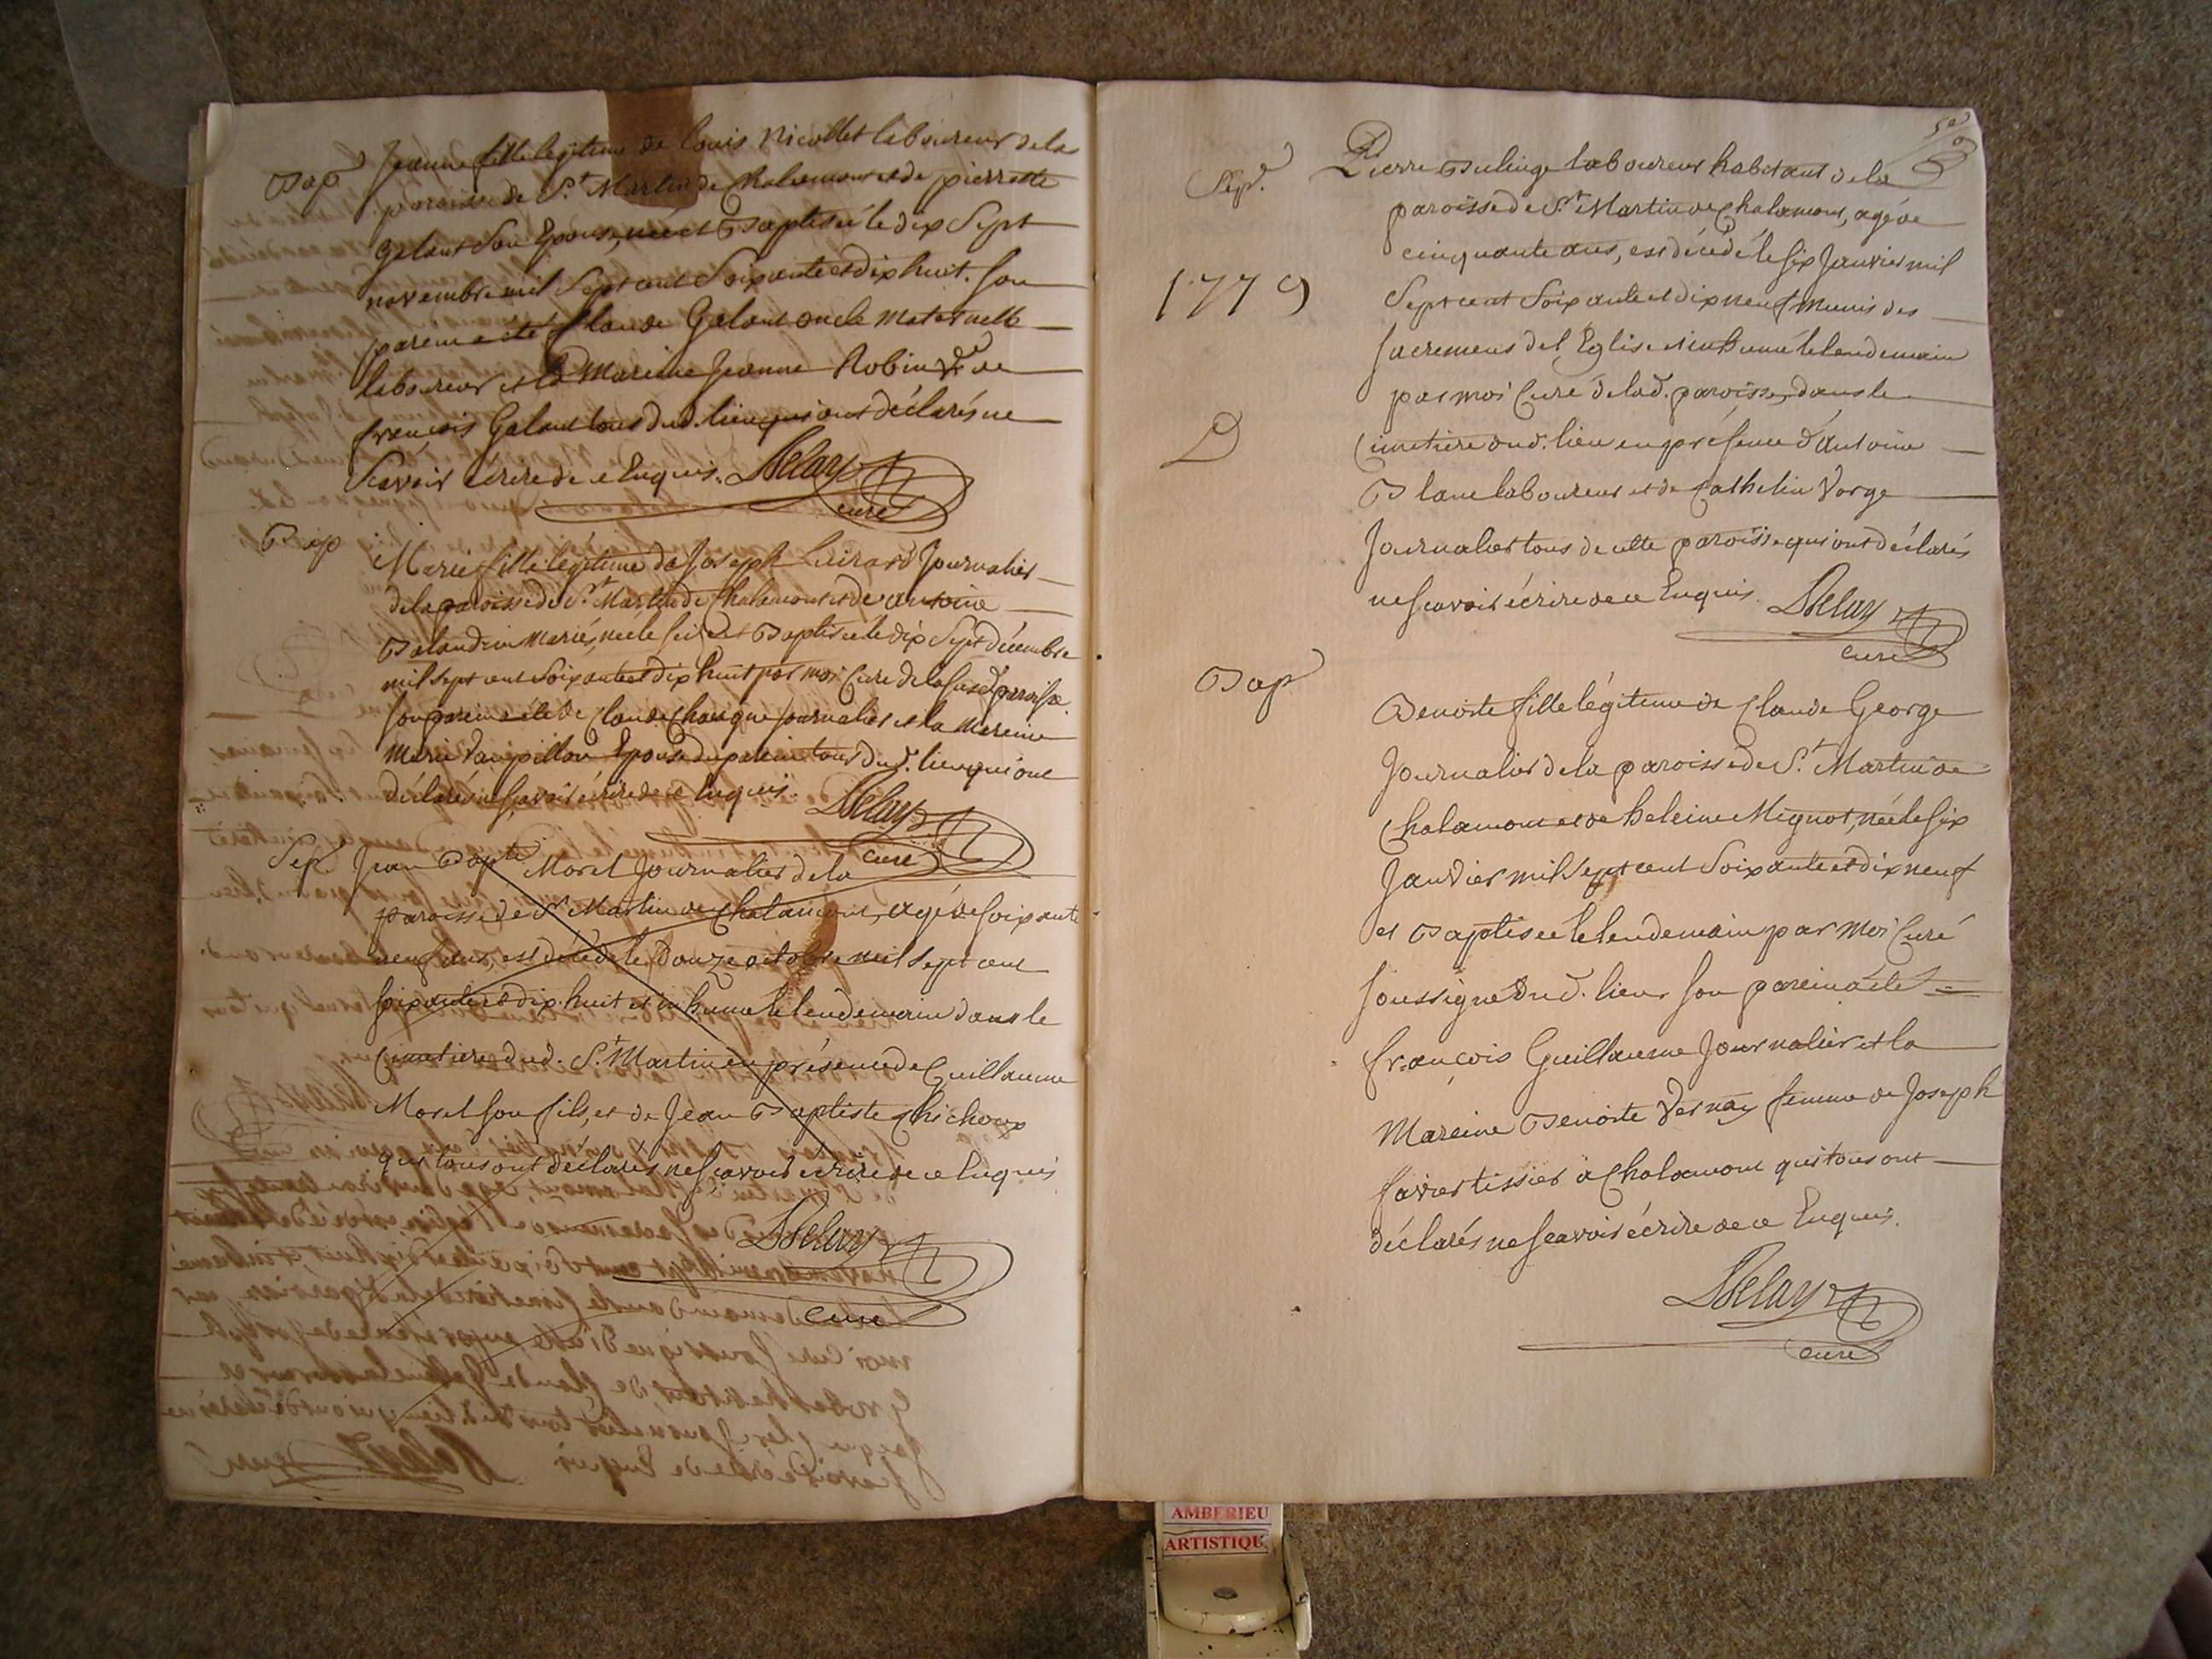 Bap
Jeanne fille legitime de Louis Nicollet laboureur de la
paroisse de St. Martin de Chalamont et de pierrette
Galant Son Epouse, née et Baptisée le dix Sept
novembre mil Sept cent Soixante et dix huit. Son
parein a eté Claude Galant oncle maternelle
laboureur et la Mareine Jeanne Robin Ve. de
francois Galant tous dud. lieu qui ont déclarés ne
Scavoir écrire de ce Enquis. Delay
curé
Bap
Marie fille légitime de Joseph Guirard Journalier
de la paroisse de St. Martin de Chalamont et de antoine
Balandrin mariés, née le Seize et Baptisée le dix Sept décembre
mil Sept cent Soixante et dix huit par moi Curé de la Susd. paroisse
Son parein a été de Claude Changue Journalier et la mareine
Marie Vaupillon Epouse du parein tous dud. lieu qui ont
déclarés ne Scavoir écrire de ce Enquis. Delay
curé
Sep.
Jean Bapte Morel Journalier de la
paroisse de St Martin de Chalamont, agé de Soixante
neuf ans, est décédé le Douze octobre mil Sept cent
Soixante et dix huit et inhumé le lendemain dans le
Cimetiere dud. St. Martin en présence de Guillaume
Morel Son fils, et de Jean Baptiste Chichoux
qui tous ont déclarés ne Scavoir écrire de ce Enquis
Delay
curé
Sep.
1779
D
Pierre Bulinge laboureur habitant de la
paroisse de St. Martin de Chalamont, agé de
cinquante ans, est décédé le Six Janvier mil
Sept cent Soixante et dix neuf munis des
Sacremens de l'Eglise et inhumé le lendemain
par moi Curé de lad. paroisse, dans le
Cimetiere dud. lieu en présence d'Antoine
Blanc laboureur et de Cathelin Vorge
Journalier tous de cette paroisse qui ont déclarés
ne Scavoir écrire de ce Enquis. Delay
curé
Bap
Benoite fille légitime de Claude George
Journalier de la paroisse de St. Martin de
Chalamont et de heleine Mignot, née le Six
Janvier mil Sept cent Soixante et dix neuf
et Baptisée le lendemain par moi Curé
Soussigné dud. lieu. Son parein a été
francois Guillaume Journalier et la
Mareine Benoite Vernay femme de Joseph
favier tissier à Chalamont qui tous ont
déclarés ne Scavoir écrire de ce Enquis.
Delay
curé
AMBERIEU
ARTISTIQU